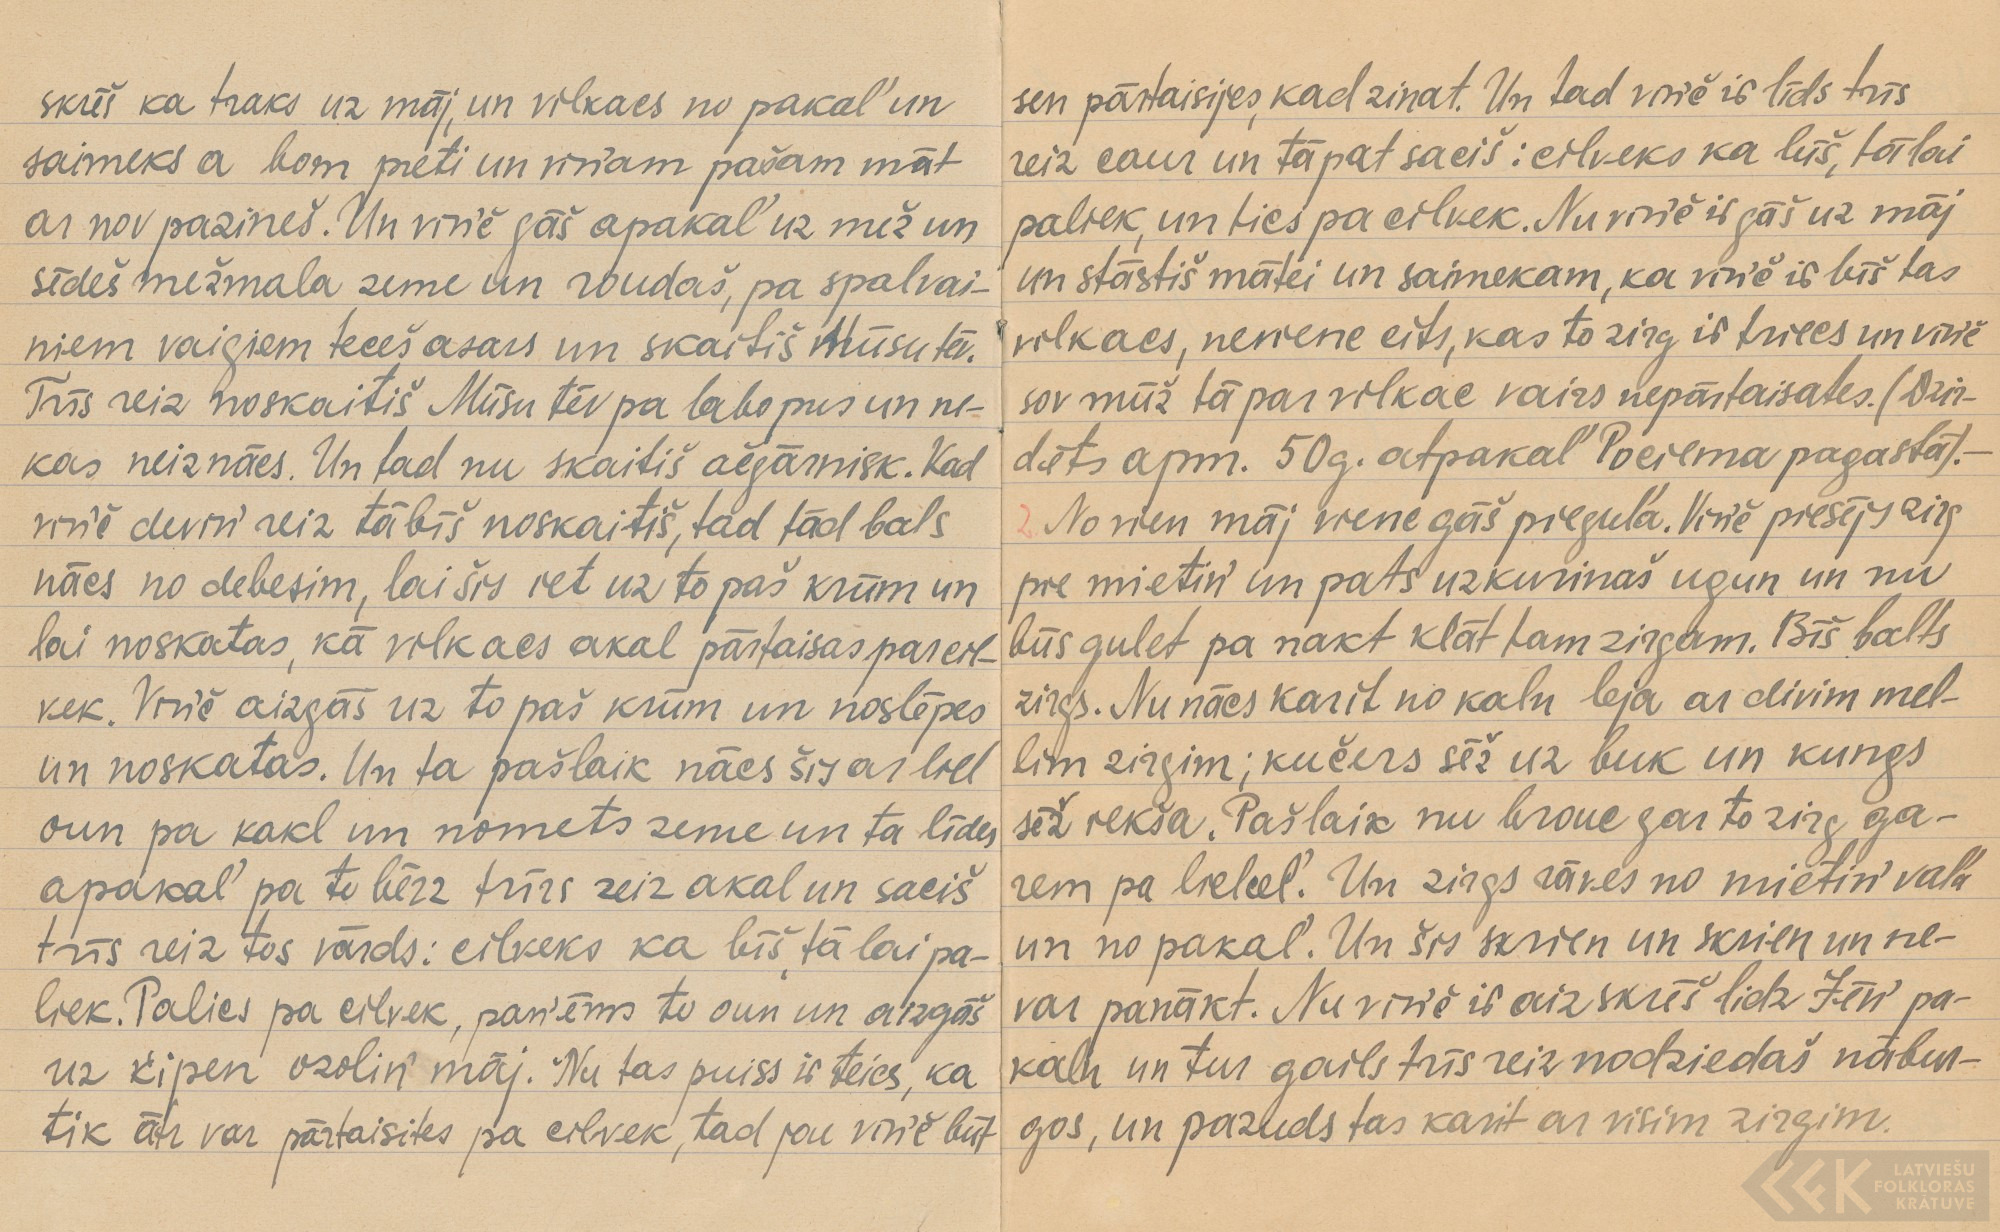 skrēš ka traks uz māj, un vilkaes no pakaľ un
saimeks a bom preti un viņam pašam māt
ar nov pazineš. Un viņč gāš apakaľ uz mež un
sēdeš mežmala zeme un roudaš, pa spalvai-
niem vaigiem teceš asars un skaitiš Mūsu tēv.
Trīs reiz noskaitiš Mūsu tēv pa labo pus un ne-
kas neiznācs. Un tad nu skaitiš ačgārnisk. Kad
viņč deviņ reiz tā bīš noskaitiš, tad tād bals
nācs no debesim, lai šis iet uz to paš krūm un
lai noskatas, kā vilkacs akal pārtaisas par cil-
vek. Viņč aizgāš uz to paš krūm un noslēpes
un noskatas. Un ta pašlaik nācs šis ar liel
oun pa kakl un nomets zeme un ta līdes
apakaľ pa to bērz trīrs reiz akal un saciš
trīs reiz tos vārds: cilveks ka bīš, tā lai pa-
liek. Palics pa cilvek, paņēms to oun un aizgāš
uz Ķipen ozoliņ māj. Nu tas puiss ir teics, ka
tik ātr var pārtaisites pa cilvek, tad jou viņč būt
sen pārtaisijes, kad zinat. Un tad viņč ir līds trīs
reiz caur un tāpat saciš: cilveks ka bīš, tā lai
paliek, un tics pa cilvek. Nu viņč ir gāš uz māj
un stāstiš mātei un saimekam, ka viņč ir bīš tas
vilkacs, neviene cits, kas to zirg ir triecs un viņč
sov mūž tā par vilkac vairs nepārtaisates. (Dzir-
dēts apm. 50 g. atpakaľ Pociema pagastā).—
2. No vien māj viene gāš piegulā. Viņč piesējs zirg
pie mietiņ un pats uzkurinaš ugun un nu
būs gulet pa nakt klāt tam zirgam. Bīš balts
zirgs. Nu nācs karit no kaln leja ar divim mel-
lim zirgim; kučers sēž uz buk un kungs
sēž iekša. Pašlaik nu brouc gar to zirg ga-
rem pa lielceľ. Un zirgs rāves no mietiņ vaļā
un no pakaľ. Un šis skrien un skrien un ne-
var panākt. Nu viņč ir aizskrēš lidz Zēņ pa-
kaln un tur gails trīs reiz nodziedaš nābur-
gos, un pazuds tas karit ar visim zirgim.
LATVIEŠU
FOLKLORAS
KRĀTUVE